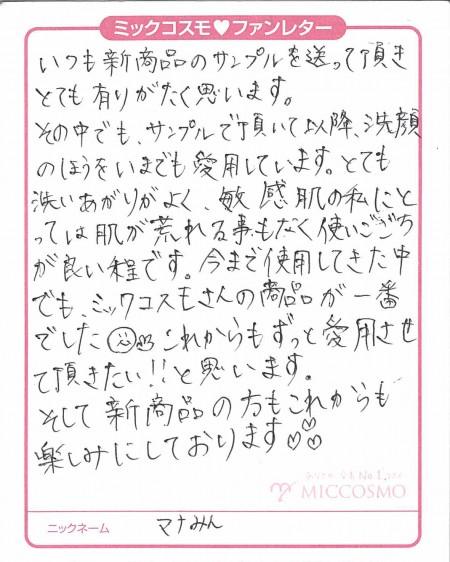 ミックコスモ♥ファンレター
いつも新商品のサンプルを送って頂き
とても有りがたく思います。
その中でも、サンプルで頂いて以降、洗顔
のほうをいまでも愛用しています。とても
洗いあがりがよく、敏感肌の私にと
っては肌が荒れる事もなく使いごこち
が良い程です。今まで使用してきた中
でも、ミックコスモさんの商品が一番
でした
これからもずっと愛用させ
て頂きたい!!と思います。
そして新商品の方もこれからも
楽しみにしております♡♡♡
MICCOSMO
ニックネーム マナみん